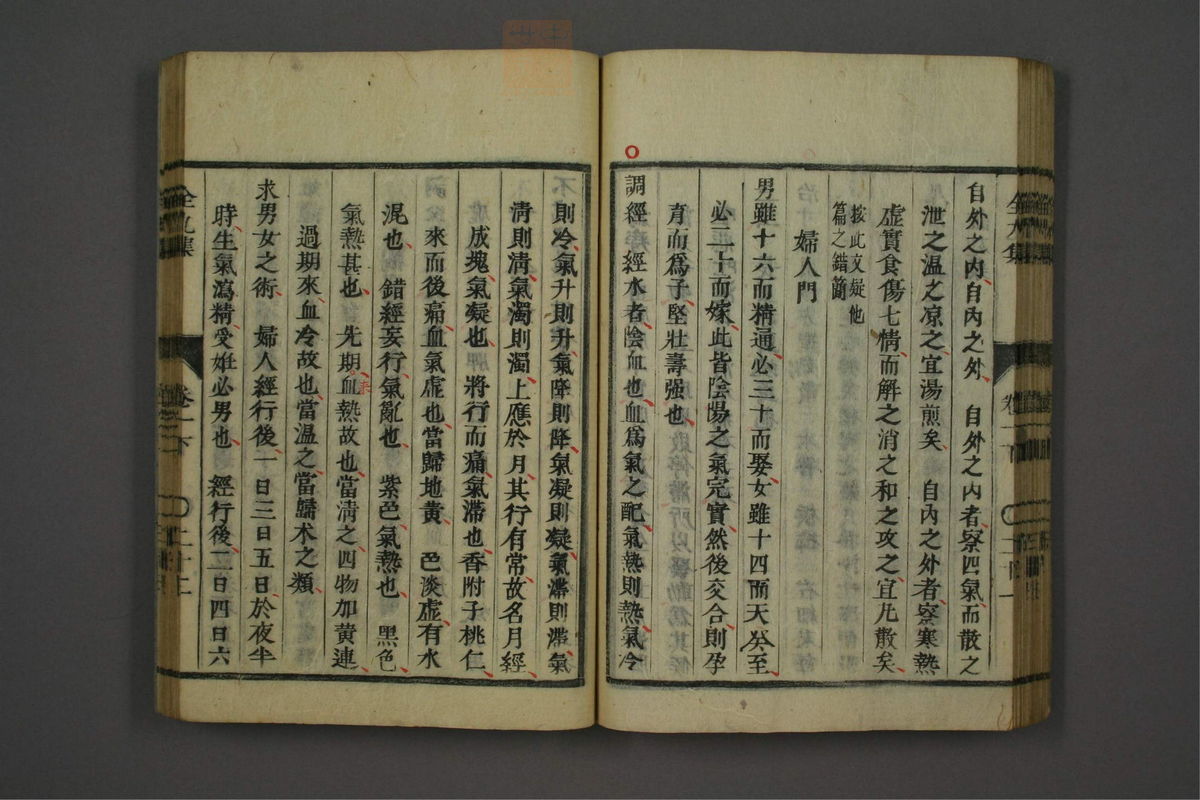 自外之內自內之外　自外之內者察四氣而散之
泄之温之凉之宜湯煎矣　自內之外者察寒熱
虛實食傷七情而解之消之和之攻之宜凡散矣
按此文疑他
篇之錯簡
婦人門
男雖十六而精通必三十而娶女雖十四而天癸至
必二十而嫁此皆陰陽之氣完實然後交合則孕
育而爲子堅壯壽强也
調經　經水者陰血也血爲氣之配氣熱則熱氣冷
則冷氣升則升氣降則降氣凝則凝氣滯則滯氣
淸則淸氣濁則濁上應於月其行有常故名月經
成塊氣凝也　將行而痛氣滯也香附子桃仁
來而後痛血氣虛也當歸地黄　色淡虛有水
混也　錯經妄行氣亂也　紫色氣熱也　黑色
氣熱甚也　先期血熱故也當淸之四物加黄連
過期來血冷故也當温之當歸术之類
求男女之術　婦人經行後一日三日五日於夜半
時生氣瀉精受姙必男也　經行後二日四日六